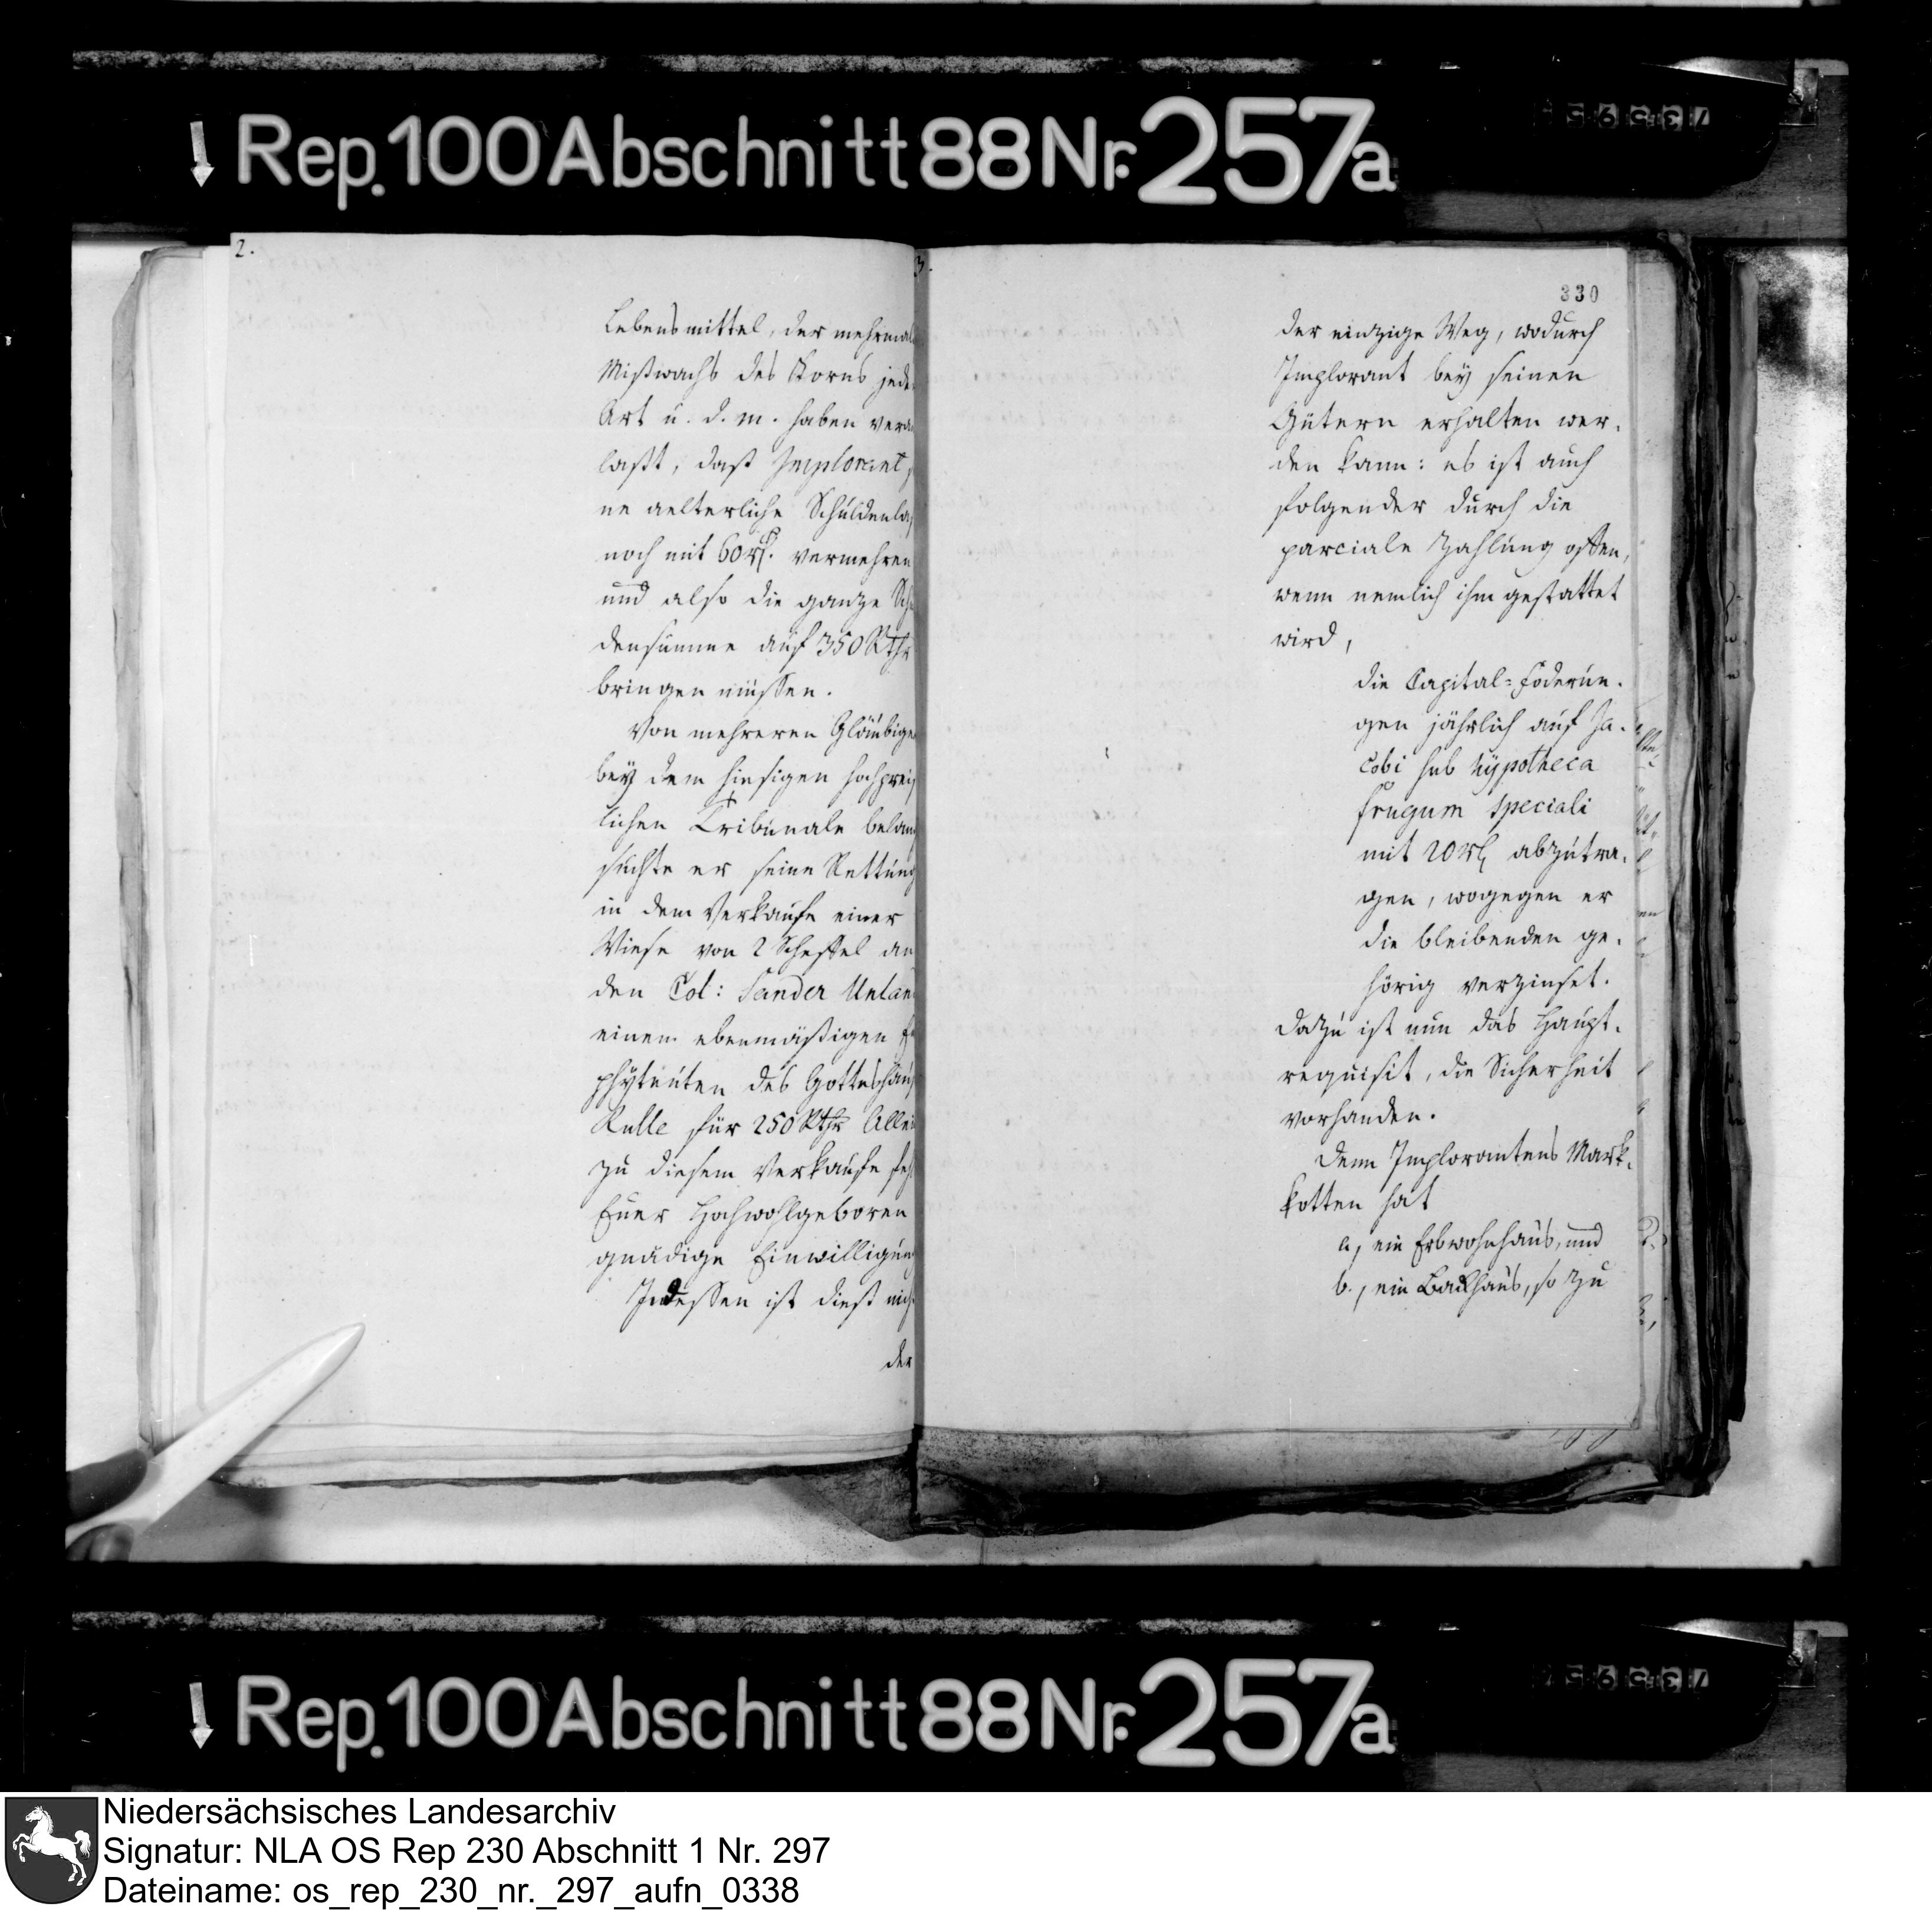 Rep. 100 Abschnitt 88 Nr. 257a
2.
Lebensmittel, der mehrmal
Mißwachs des Korns jede
Art u. d. m. haben vera
laßt, daß Implorant s
ne aelterliche Schuldenlas
noch mit 60 rt. vermehren
und also die ganze Schu
densumme auf 350 Rthr
bringen müssen.
Von mehreren Gläubige
bey dem hiesigen hochpreis
lichen Tribunale belan
suchte er seine Rettung
in dem Verkaufe einer
Wiese von 2 Scheffel an
den Col: Sander Unlan
einem ebenmäßigen E
phyteuten des Gotteshaus
Rulle für 250 Rthr Allei
zu diesem Verkaufe feh
Euer Hochwohlgeboren
gnädige Einwilligung
Indessen ist dieß nich
der
3.
330
der einzige Weg, wodurch
Implorant bey seinen
Gütern erhalten wer-
den kann: es ist auch
folgender durch die
parciale Zahlung offen,
wenn nemlich ihm gestattet
wird,
die Capital-Foderun-
gen jährlich auf Ja-
cobi sub hypotheca
frugum speciali
mit 20 rt abzutra-
gen, wogegen er
die bleibenden ge-
hörig verzinset.
Dazu ist nun das Haupt-
requisit, die Sicherheit
vorhanden.
Denn Implorantens Mark-
kotten hat
a, ein Erbwohnhaus, und
b., ein Backhaus, so zu
Rep. 100 Abschnitt 88 Nr. 257a
Niedersächsisches Landesarchiv
Signatur: NLA OS Rep 230 Abschnitt 1 Nr. 297
Dateiname: os_rep_230_nr._297_aufn_0338